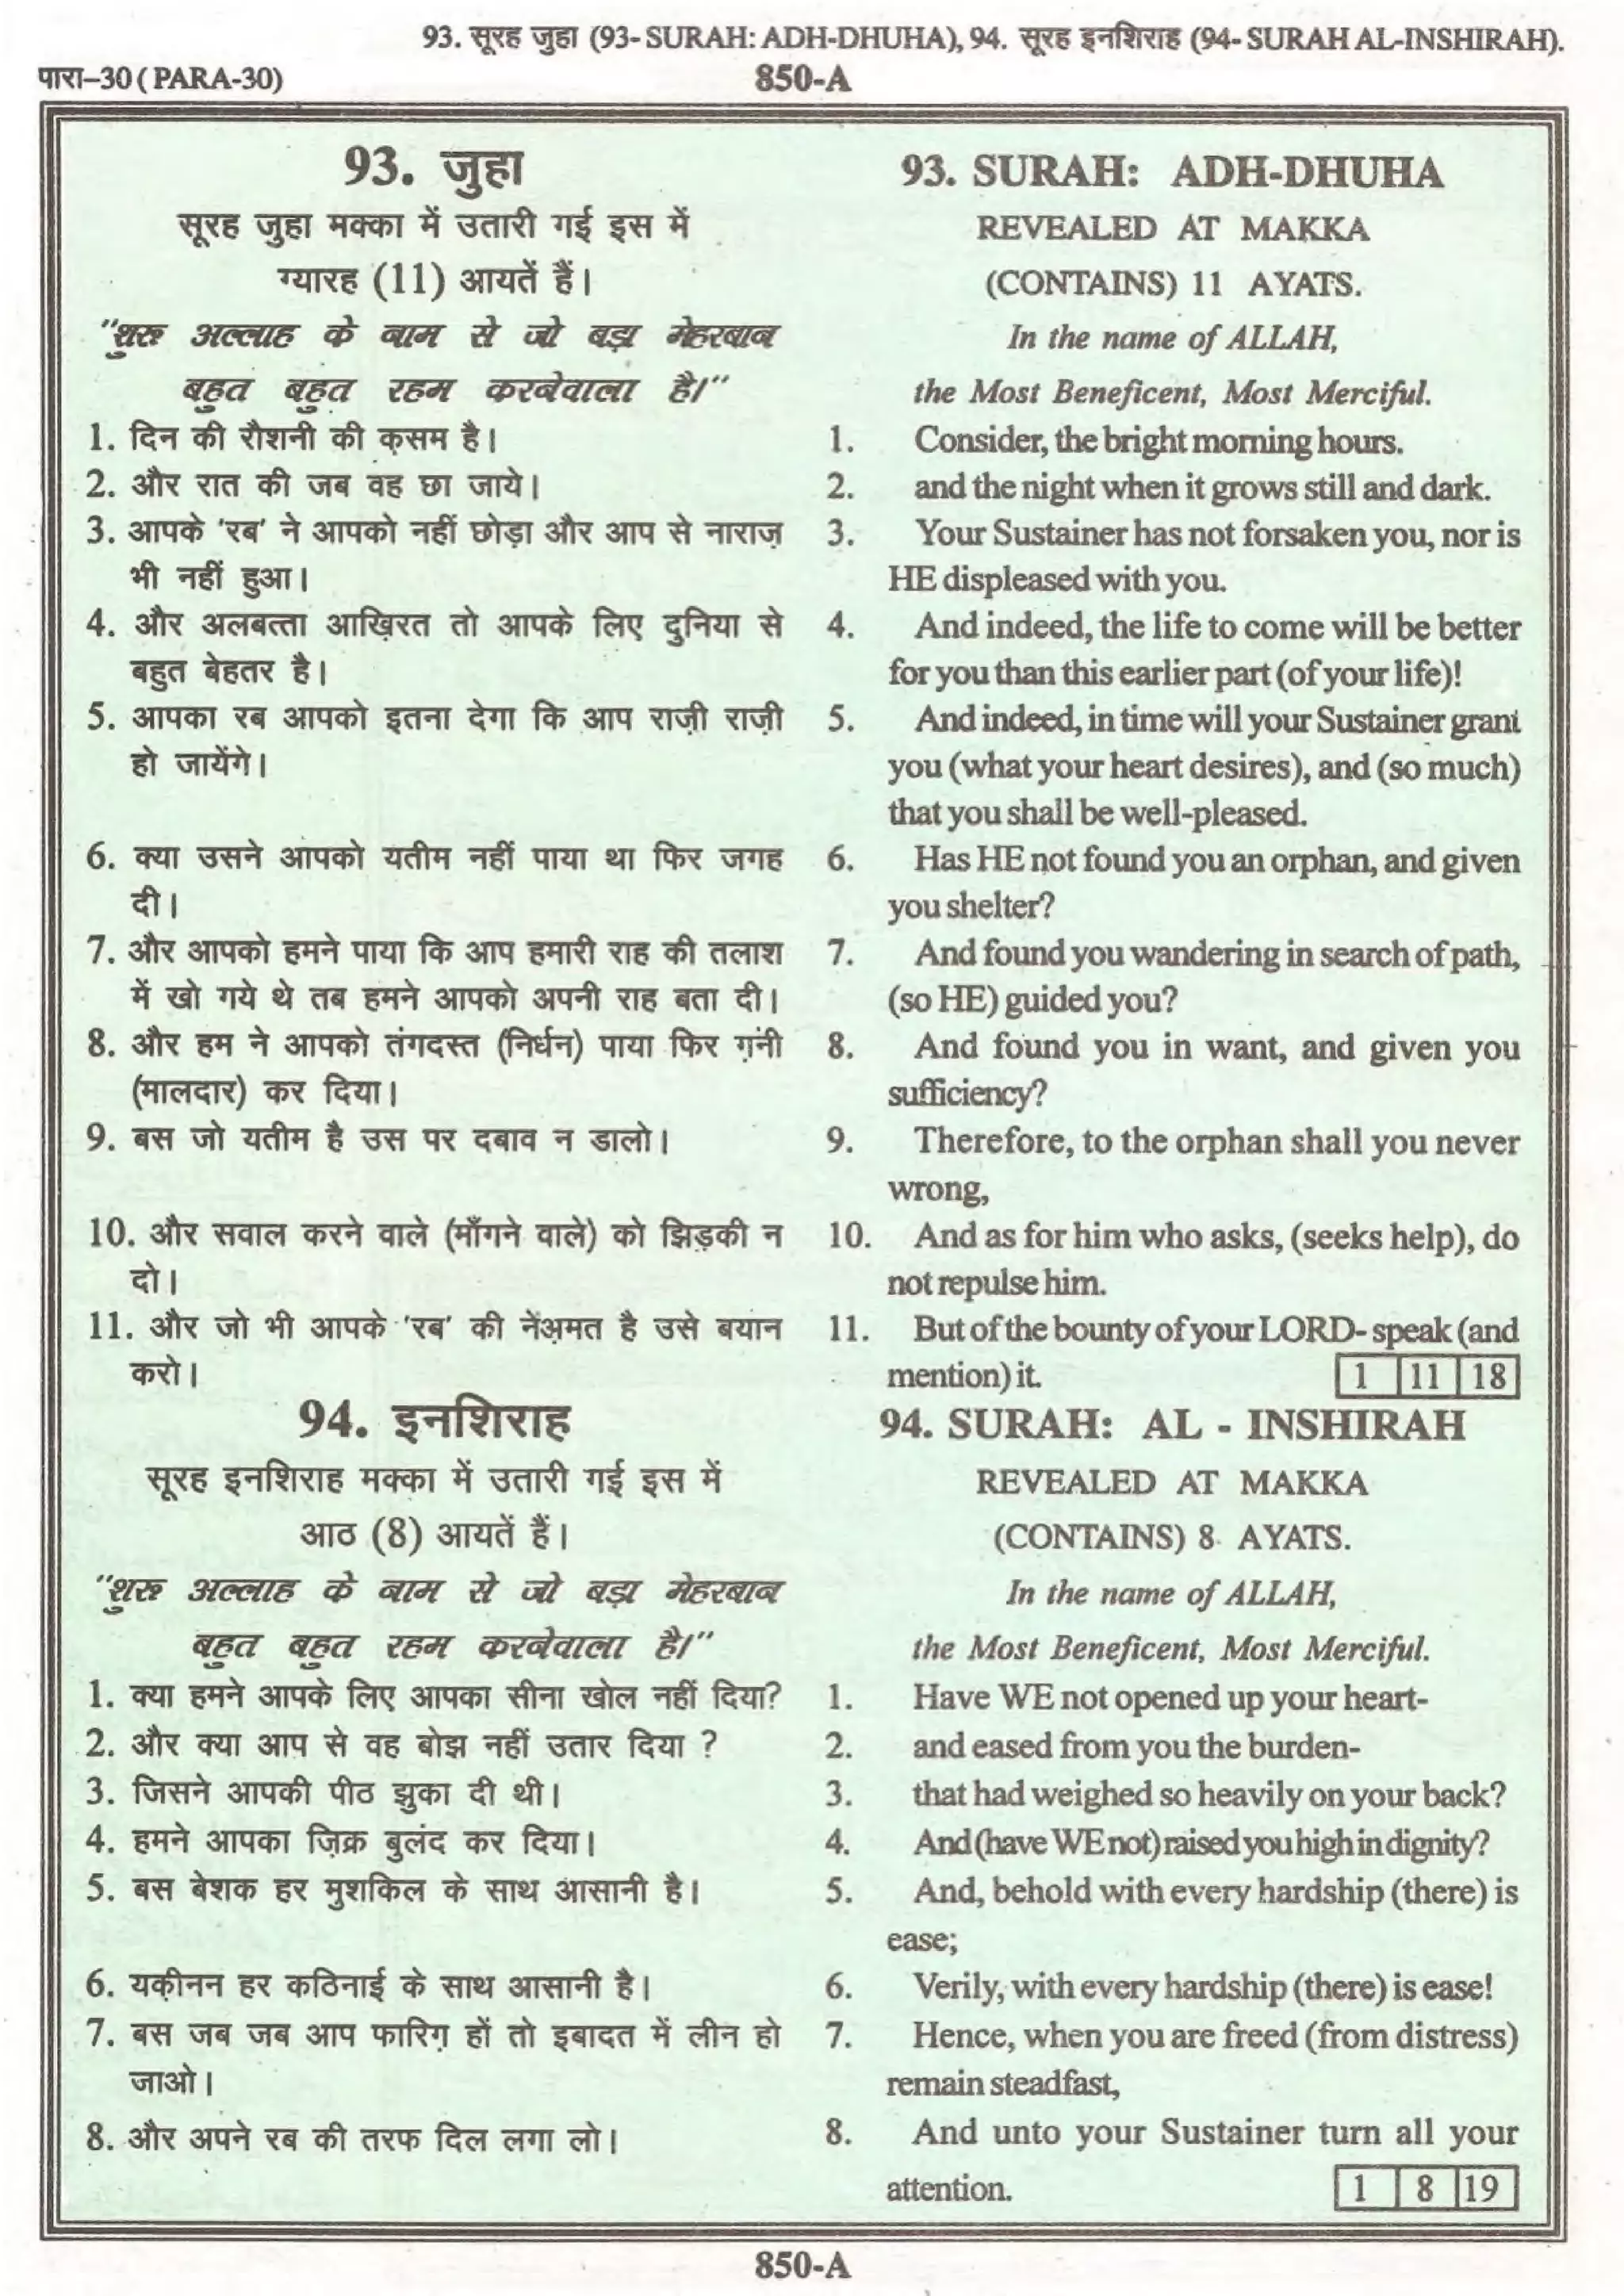 93. सूरह जुहा (93- SURAH: ADH-DHUHA), 94. सूरह इनशिराह (94- SURAH AL-INSHIRAH).
पारा–30 ( PARA-30)
850-A
93. जुहा
सूरह जुहा मक्का में उतारी गई इस में
ग्यारह (11) आयतें हैं।
"शुरू अल्लाह के नाम से जो बड़ा मेहरबान
बहुत बहुत रहम करनेवाला है।"
1. दिन की रौशनी की क़सम है।
2. और रात की जब वह छा जाये।
3. आपके 'रब' ने आपको नहीं छोड़ा और आप से नाराज़
भी नहीं हुआ।
4. और अलबत्ता आख़िरत तो आपके लिए दुनिया से
बहुत बेहतर है।
5. आपका रब आपको इतना देगा कि आप राज़ी राज़ी
हो जायेंगे।
6. क्या उसने आपको यतीम नहीं पाया था फिर जगह
दी।
7. और आपको हमने पाया कि आप हमारी राह की तलाश
में खो गये थे तब हमने आपको अपनी राह बता दी।
8. और हम ने आपको तंगदस्त (निर्धन) पाया फिर ग़नी
(मालदार) कर दिया।
9. बस जो यतीम है उस पर दबाव न डालो।
10. और सवाल करने वाले (माँगने वाले) को झिड़की न
दो।
11. और जो भी आपके 'रब' की नेंअ़मत है उसे बयान
करो।
94. इनशिराह
सूरह इनशिराह मक्का में उतारी गई इस में
आठ (8) आयतें हैं।
"शुरू अल्लाह के नाम से जो बड़ा मेहरबान
बहुत बहुत रहम करनेवाला है।"
1. क्या हमने आपके लिए आपका सीना खोल नहीं दिया?
2. और क्या आप से वह बोझ नहीं उतार दिया ?
3. जिसने आपकी पीठ झुका दी थी।
4. हमने आपका ज़िक्र बुलंद कर दिया।
5. बस बेशक हर मुशकिल के साथ आसानी है।
6. यक़ीनन हर कठिनाई के साथ आसानी है।
7. बस जब जब आप फारिग़ हों तो इबादत में लीन हो
जाओ।
8. और अपने रब की तरफ दिल लगा लो।
93. SURAH: ADH-DHUHA
REVEALED AT MAKKA
(CONTAINS) 11 AYATS.
In the name of ALLAH,
the Most Beneficent, Most Merciful.
1. Consider, the bright morning hours.
2. and the night when it grows still and dark.
3. Your Sustainer has not forsaken you, nor is
HE displeased with you.
4. And indeed, the life to come will be better
for you than this earlier part (of your life)!
5. And indeed, in time will your Sustainer grant
you (what your heart desires), and (so much)
that you shall be well-pleased.
6. Has HE not found you an orphan, and given
you shelter?
7. And found you wandering in search of path,
(so HE) guided you?
8. And found you in want, and given you
sufficiency?
9. Therefore, to the orphan shall you never
wrong,
10. And as for him who asks, (seeks help), do
not repulse him.
11. But of the bounty of your LORD- speak (and
mention) it. 1 11 18
94. SURAH: AL - INSHIRAH
REVEALED AT MAKKA
(CONTAINS) 8 AYATS.
In the name of ALLAH,
the Most Beneficent, Most Merciful.
1. Have WE not opened up your heart-
2. and eased from you the burden-
3. that had weighed so heavily on your back?
4. And (have WE not) raised you high in dignity?
5. And, behold with every hardship (there) is
ease;
6. Verily, with every hardship (there) is ease!
7. Hence, when you are freed (from distress)
remain steadfast,
8. And unto your Sustainer turn all your
attention. 1 8 19
850-A